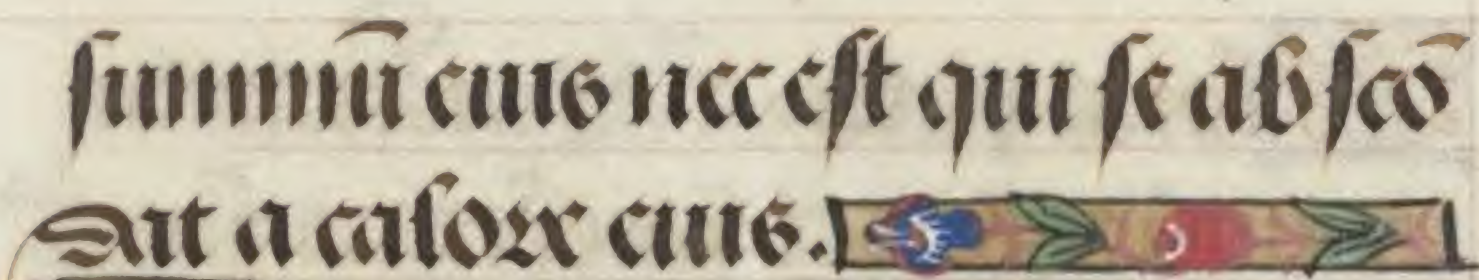 summū eius nec est qui se absco᷒
dit a calore eius.